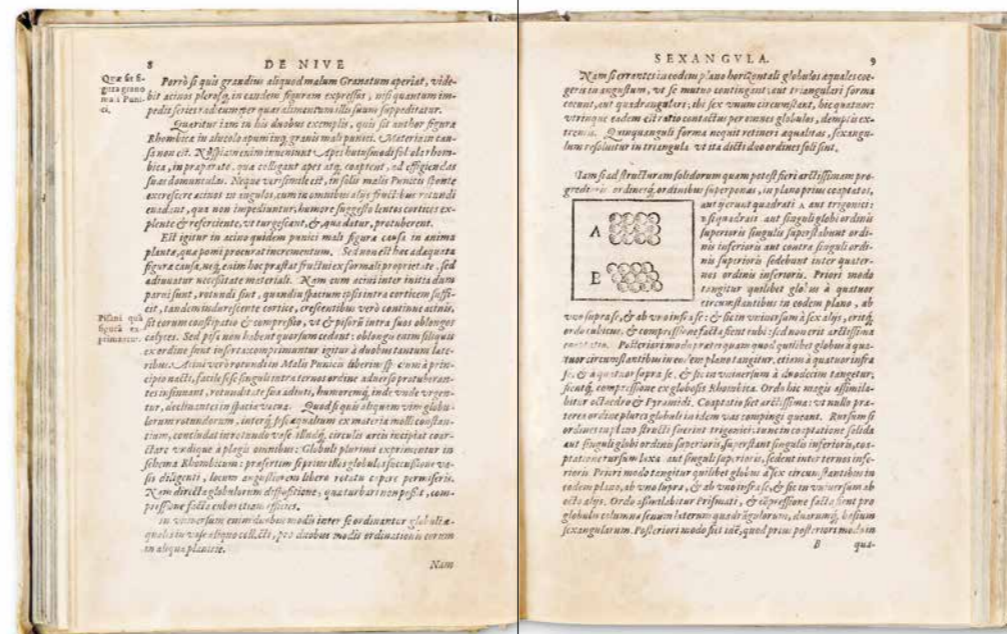 8 DE NIVE
Quæ sit fi-
gura grano
rũ mali Puni-
ci.
Porrò si quis grandius aliquod malum Granatum aperiat, vide-
bit acinos plerosq́; in eandem figuram expressos, nisi quantum im-
pedit series radicum per quas alimentum illis suum suppeditatur.
Quæritur iam in his duobus exemplis, quis sit author figuræ
Rhombicæ in alveolo apum inq́; granis mali punici. Materia in cau-
sa non est. Nuspiam enim inveniunt Apes hujusmodi foliola rhom-
bica, in præparato, quæ colligant apes atq́; coaptent, ad effigiendas
suas domunculas. Neque verisimile est, in solis malis Punicis sponte
excrescere acinos in angulos, cum in omnibus alijs fructibus rotundi
evadant, qua non impediuntur, humore suggesto lentos cortices ex-
plente & referciente, vt turgescant, &, qua datur, protuberent.
Est igitur in acino quidem punici mali figuræ causa in anima
plantæ, quæ pomi procurat incrementum. Sed non est hæc adæquata
figuræ causa, neq́; enim hoc præstat fructui ex formali proprietate, sed
adiuvatur necessitate materiali. Nam cum acini inter initia dum
parvi sunt, rotundi sint, quandiu spacium ipsis intra corticem suffi-
cit, tandem indurescente cortice, crescentibus verò continue acinis,
Pisani quâ
figurã ex
primantur.
fit eorum constipatio & compressio, vt & pisorũ intra suos oblongos
calyces. Sed pisa non habent quorsum cedant: oblongis enim siliquis
ex ordine sunt inserta: comprimuntur igitur à duobus tantum late-
ribus. Acini verò rotundi in Malis Punicis liberum spacium à prin-
cipio nacti, facile sese singuli intra ternos ordine adverso protuberan-
tes insinuant, rotunditate sua adiuti, humoremq́; inde vnde vrgen-
tur, declinantes in spacia vacua. Quod si quis aliquem vim globu-
lorum rotundorum, interq́; se æqualium ex materia molli constan-
tiam, concludat in rotundo vase illudq́; circulis arcis incipiat coar-
ctare vndique à plagis omnibus: Globuli plurimi exprimentur in
schema Rhombicum: præsertim si prius illos globulos succussione va-
sis diligenti, locum angustiorem libero rotatu capere permiseris.
Nam directa globulorum dispositione, quæ turbari non possit, com-
pressione facta cubos etiam efficies.
In vniversum enim duobus modis inter se ordinantur globuli æ-
quales in vase aliquo collecti, pro duobus modis ordinationis eorum
in aliqua planicie.
Nam
SEXANGVLA. 9
Nam si errantes in eodem plano horizontali globulos æquales coe-
geris in angustum, vt se mutuo contingant: aut triangulari forma
coeunt, aut quadrangulari; ibi sex vnum circumstant, hic quatuor:
vtrinque eadem est ratio contactus per omnes globulos, demptis ex-
tremis. Quinquanguli forma nequit retineri æqualitas, sexangu-
lum resolvitur in triangula vt ita dicti duo ordines soli sint.
Iam si ad structuram solidorum quam potest fieri arctissimam pro-
grediaris ordinesq́; ordinibus superponas, in plano prius coaptatos,
aut ij erunt quadrati A aut trigonici:
si quadrati aut singuli globi ordinis
superioris singulis superstabunt ordi-
nis inferioris aut contra singuli ordi-
nis superioris sedebunt inter quater-
nos ordinis inferioris. Priori modo
tangitur quilibet globus à quatuor
circumstantibus in eodem plano, ab
A
B
vno supra se, & ab vno infra se: & sic in vniversum à sex alijs, eritq́;
ordo cubicus, & compressione facta fient cubi: sed non erit arctissima
coaptatio. Posteriori modo præterquam quod quilibet globus à qua-
tuor circumstantibus in eodem plano tangitur, etiam à quatuor infra
se, & à quatuor supra se, & sic in vniversum à duodecim tangetur,
fientq́; compressione ex globosis Rhombica. Ordo hic magis assimila-
bitur octaedro & Pyramidi. Coaptatio fiet arctissima: vt nullo præ-
terea ordine plures globuli in idem vas compingi queant. Rursum si
ordines in plano structi fuerint trigonici: tunc in coaptatione solida
aut singuli globi ordinis superioris, superstant singulis inferioris, co-
aptatione rursum laxa aut singuli superioris, sedent inter ternos infe-
rioris Priori modo tangitur quilibet globus à sex circumstantibus in
eodem plano, ab vno supra, & ab vno infra se, & sic in vniversum ab
octo alijs. Ordo assimilabitur Prismati, & cõpressione facta fient pro
globulis columnæ senum laterum quadrãgulorum, duarumq́; basium
sexangularum. Posteriori modo fiet idẽ, quod prius posteriori modo in
B qua-